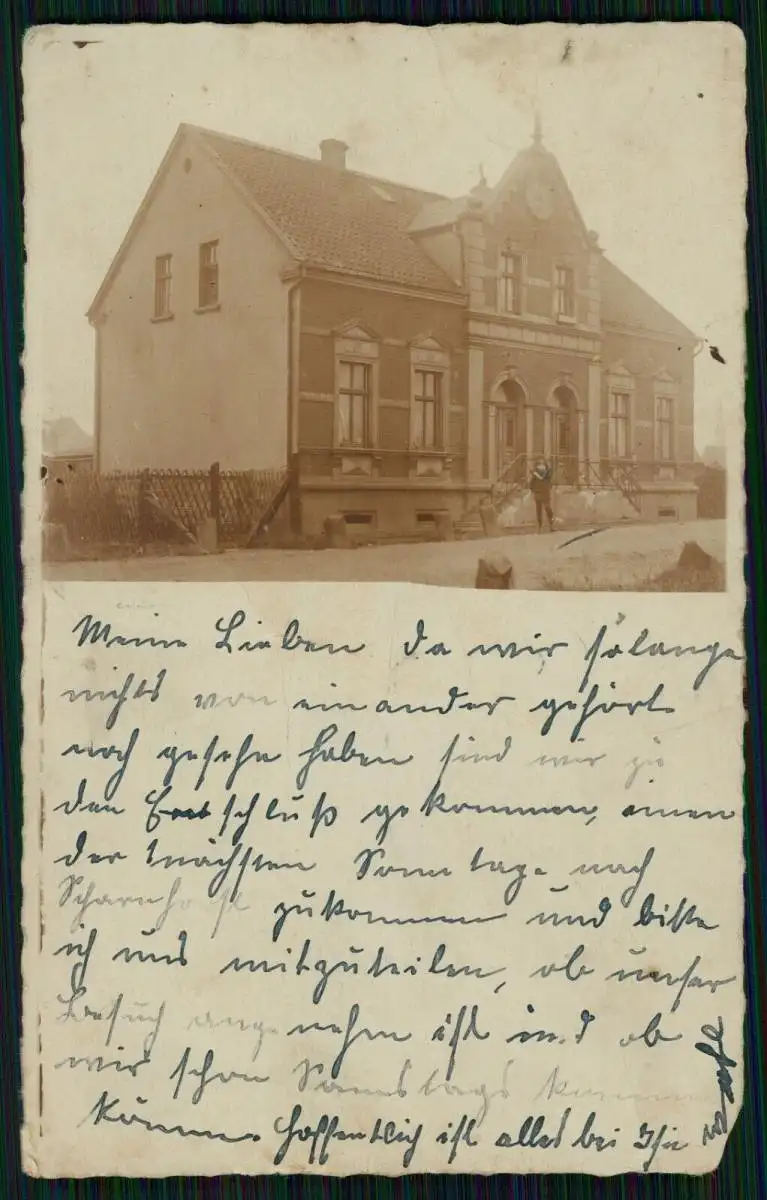 Meine Lieben da wir solange
nichts von einander gehört
noch gesehn haben sind wir zu
den Entschluß gekommen, einen
der nächsten Sonntage nach
Scharnhorst zukommen und bitte
ich uns mitzuteilen, ob unser
Besuch angenehm ist und ob
wir schon Sonnabends kommen
können. Hoffentlich ist alles bei